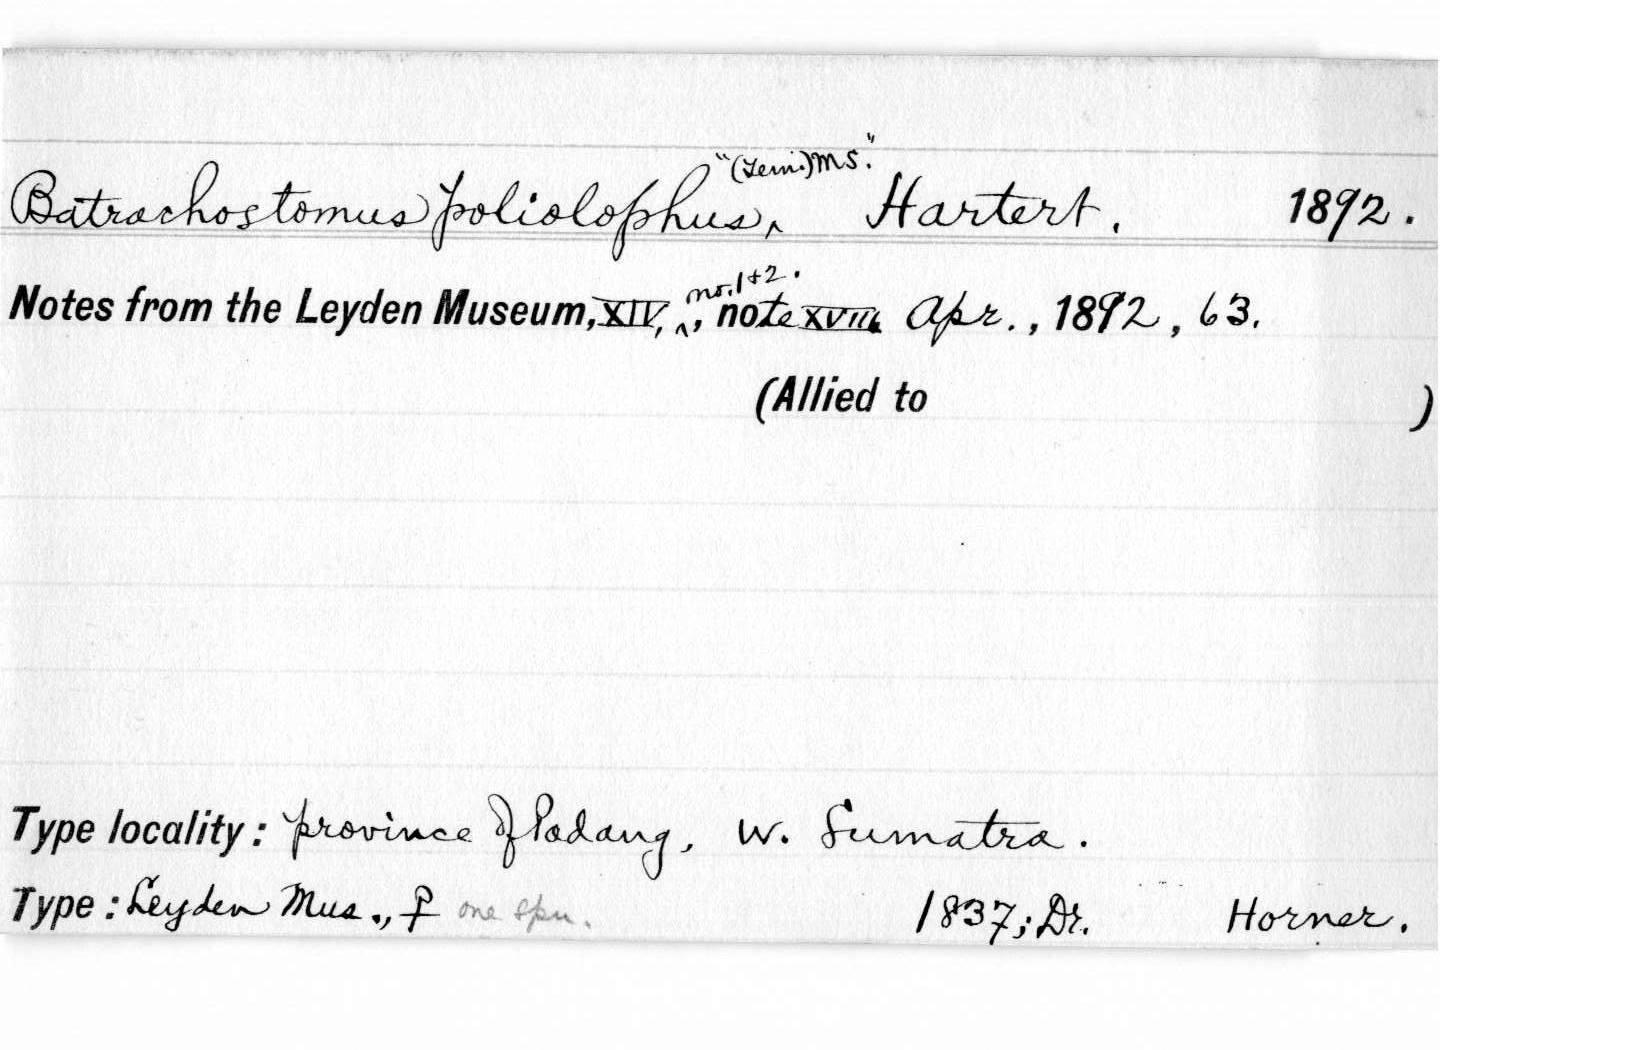 "(Tem.) MS."
Batrachostomus poliolophus, ^ Hartert. 1892.
no. 1 + 2.
Notes from the Leyden Museum, XIV, ^, note XVIII, Apr., 1892, 63.
(Allied to )
Type locality: province of Padang, W. Sumatra.
Type: Leyden Mus., ♀ one spn. 1837; Dr. Horner.